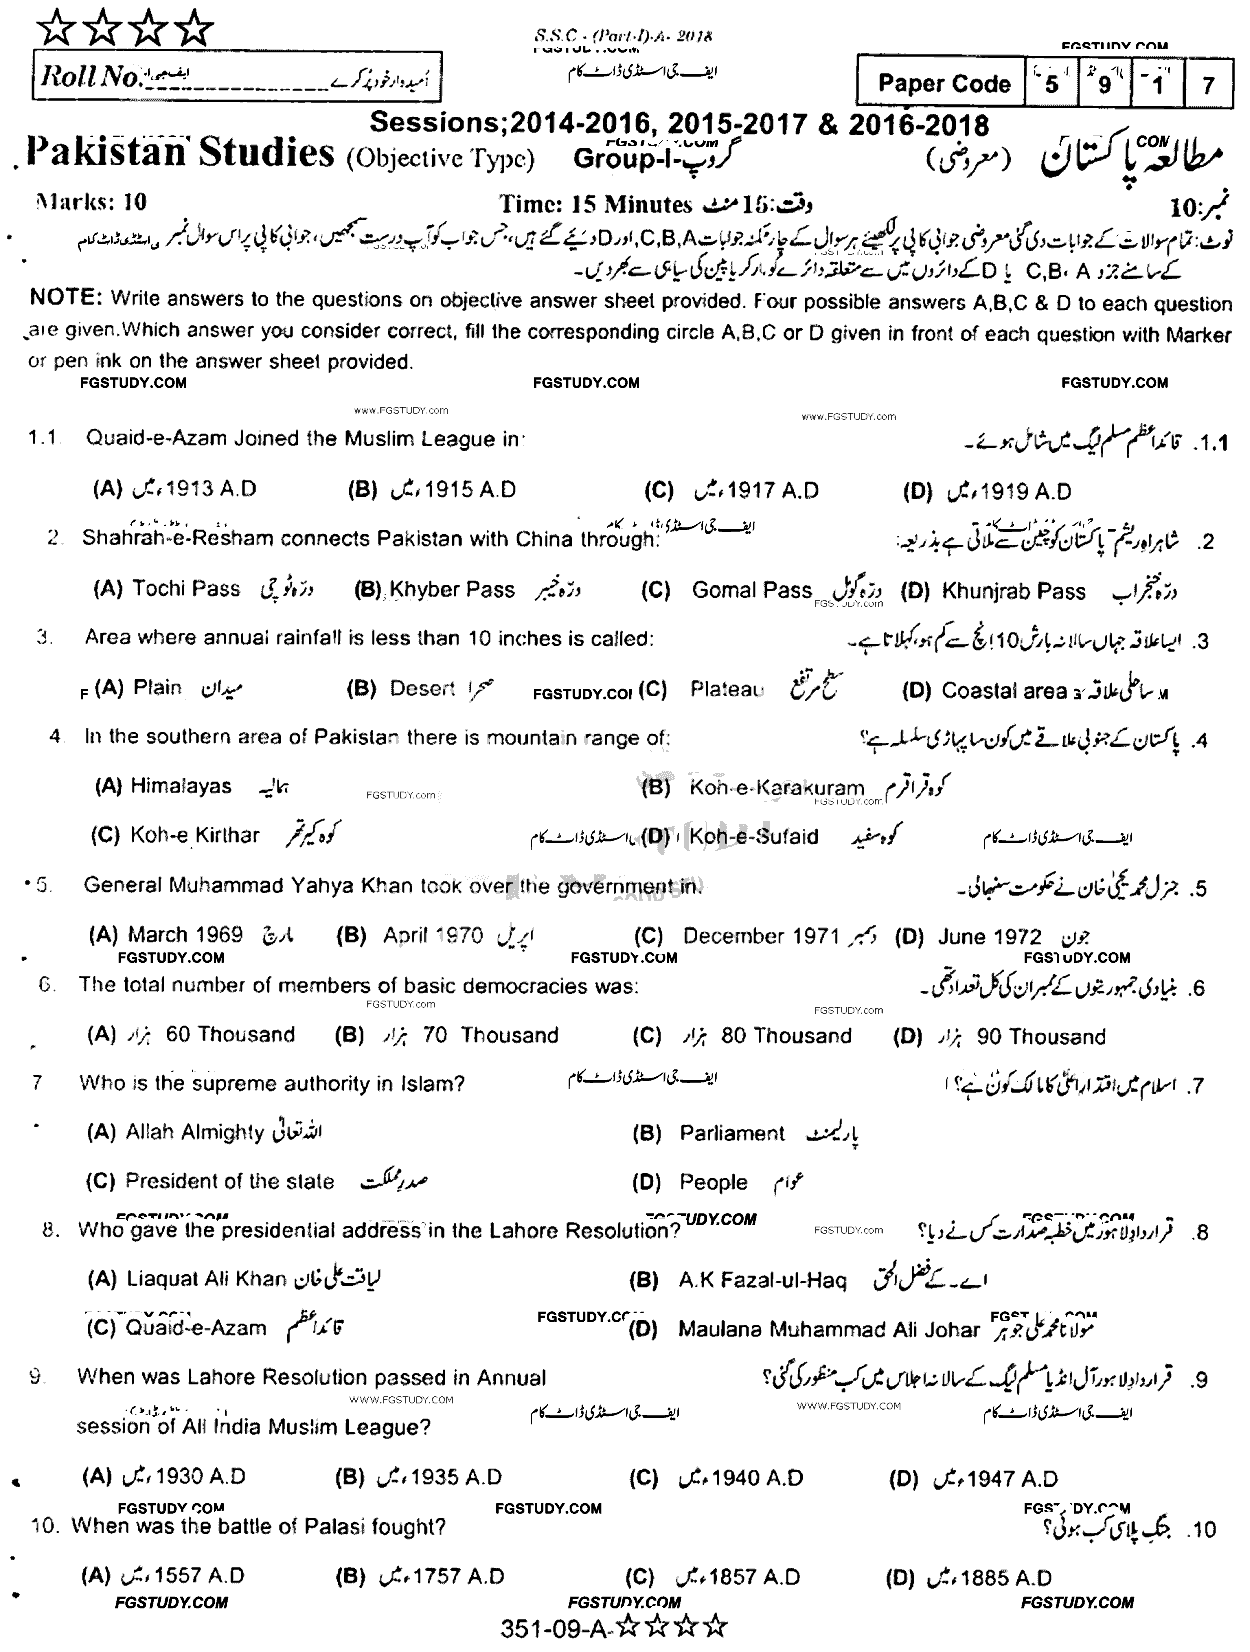 S.S.C - (Part-I)-A- 2018
FGSTUDY.COM FGSTUDY.COM
Roll No. ایف جی ا امیدوار خود پُر کرے ایف جی اسٹڈی ڈاٹ کام Paper Code 5 9 1 7
Sessions;2014-2016, 2015-2017 & 2016-2018
FGSTUDY.COM
Pakistan Studies (Objective Type) Group-I-گروپ (معروضی) مطالعہ پاکستان COM
Marks: 10 Time: 15 Minutes وقت:15 منٹ نمبر:10
نوٹ: تمام سوالات کے جوابات دی گئی معروضی جوابی کاپی پر لکھیئے ہر سوال کے چار ممکنہ جوابات C,B,A اور D دیئے گئے ہیں، جس جواب کو آپ درست سمجھیں، جوابی کاپی پر اس سوال نمبر ی اسٹڈی ڈاٹ کام
کے سامنے جزو C,B، A یا D کے دائروں میں سے متعلقہ دائرے کو مارکر یا پین کی سیاہی سے بھر دیں۔
NOTE: Write answers to the questions on objective answer sheet provided. Four possible answers A,B,C & D to each question
are given.Which answer you consider correct, fill the corresponding circle A,B,C or D given in front of each question with Marker
or pen ink on the answer sheet provided.
FGSTUDY.COM FGSTUDY.COM FGSTUDY.COM
www.FGSTUDY.com www.FGSTUDY.com
1.1 Quaid-e-Azam Joined the Muslim League in: 1.1. قائداعظم مسلم لیگ میں شامل ہوئے۔
(A) 1913 A.D ء میں (B) 1915 A.D ء میں (C) 1917 A.D ء میں (D) 1919 A.D ء میں
2. Shahrah-e-Resham connects Pakistan with China through: ایف جی اسٹڈی ڈاٹ کام 2. شاہراہ ریشم پاکستان کو چین سے ملاتی ہے بذریعہ:
(A) Tochi Pass درّہ ٹوچی (B) Khyber Pass درّہ خیبر (C) Gomal Pass درّہ گومل (D) Khunjrab Pass درّہ خنجراب
FGSTUDY.com
3. Area where annual rainfall is less than 10 inches is called: 3. ایسا علاقہ جہاں سالانہ بارش 10 انچ سے کم ہو، کہلاتا ہے۔
F (A) Plain میدان (B) Desert صحرا FGSTUDY.COI (C) Plateau سطح مرتفع (D) Coastal area ساحلی علاقہ M
4. In the southern area of Pakistan there is mountain range of: 4. پاکستان کے جنوبی علاقے میں کون سا پہاڑی سلسلہ ہے؟
(A) Himalayas ہمالیہ FGSTUDY.com (B) Koh-e-Karakuram کوہ قراقرم
FGSTUDY.com
(C) Koh-e Kirthar کوہ کیرتھر اسٹڈی ڈاٹ کام (D) Koh-e-Sufaid کوہ سفید ایف جی اسٹڈی ڈاٹ کام
5. General Muhammad Yahya Khan took over the government in. 5. جنرل محمد یحییٰ خان نے حکومت سنبھالی۔
(A) March 1969 مارچ (B) April 1970 اپریل (C) December 1971 دسمبر (D) June 1972 جون
FGSTUDY.COM FGSTUDY.COM FGSTUDY.COM
6. The total number of members of basic democracies was: 6. بنیادی جمہوریتوں کے ممبران کی کل تعداد تھی۔
FGSTUDY.com FGSTUDY.com
(A) ہزار 60 Thousand (B) ہزار 70 Thousand (C) ہزار 80 Thousand (D) ہزار 90 Thousand
7 Who is the supreme authority in Islam? ایف جی اسٹڈی ڈاٹ کام 7. اسلام میں اقتدار اعلیٰ کا مالک کون ہے؟
(A) Allah Almighty اللہ تعالیٰ (B) Parliament پارلیمنٹ
(C) President of the state صدر مملکت (D) People عوام
FGSTUDY.COM FGSTUDY.COM FGSTUDY.COM
8. Who gave the presidential address in the Lahore Resolution? FGSTUDY.com 8. قرارداد لاہور میں خطبہ صدارت کس نے دیا؟
(A) Liaquat Ali Khan لیاقت علی خان (B) A.K Fazal-ul-Haq اے۔کے فضل الحق
FGSTUDY.COM FGSTUDY.COM
(C) Quaid-e-Azam قائداعظم (D) Maulana Muhammad Ali Johar مولانا محمد علی جوہر
9. When was Lahore Resolution passed in Annual 9. قرارداد لاہور آل انڈیا مسلم لیگ کے سالانہ اجلاس میں کب منظور کی گئی؟
WWW.FGSTUDY.COM WWW.FGSTUDY.COM
session of All India Muslim League? ایف جی اسٹڈی ڈاٹ کام ایف جی اسٹڈی ڈاٹ کام
(A) 1930 A.D ء میں (B) 1935 A.D ء میں (C) 1940 A.D ء میں (D) 1947 A.D ء میں
FGSTUDY.COM FGSTUDY.COM FGSTUDY.COM
10. When was the battle of Palasi fought? 10. جنگ پلاسی کب ہوئی؟
(A) 1557 A.D ء میں (B) 1757 A.D ء میں (C) 1857 A.D ء میں (D) 1885 A.D ء میں
FGSTUDY.COM FGSTUDY.COM FGSTUDY.COM
351-09-A-☆☆☆☆